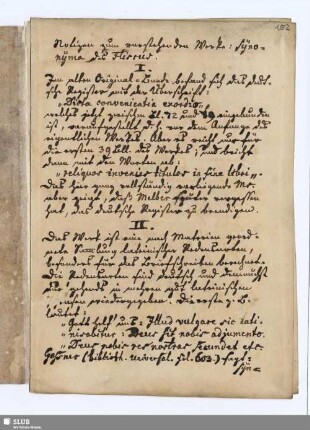 182
Notizen zum vorstehenden Werke: Syno-
nyma des Fliscus.
I.
Im alten Original-Bande befand sich das deut-
sche Register mit der Überschrift:
„Dicta convenientia exordio"
welches jetzt zwischen Bl. 72 und 79 eingebunden
ist, vorangestellt d. h. vor dem Anfange des
eigentlichen Werkes. Aber es reicht nur für
die ersten 39 Bll. des Werkes, und bricht
dann mit den Worten ab:
„reliquos invenies titulos in fine libri"
Das hier ganz vollständig vorliegende Ms.
aber zeigt, daß Melber später vergessen
hat, das deutsche Register zu beendigen.
II.
Das Werk ist eine nach Materien geord-
nete Sammlung lateinischer Redensarten,
besonders für das Briefschreiben berechnet.
Die Redensarten sind deutsch und demnächst
in mehren gut lateinischen
wiedergegeben. Die erste z. B.
lautet:
„Gott helf uns: Illud vulgare sic lati-
nisabitur: Deus sit nobis adjumento.
„Deus nobis res nostras secundet etc.
Gessner (Biblioth. universal. fol. 603.) sagt:
Syn=
SLUB